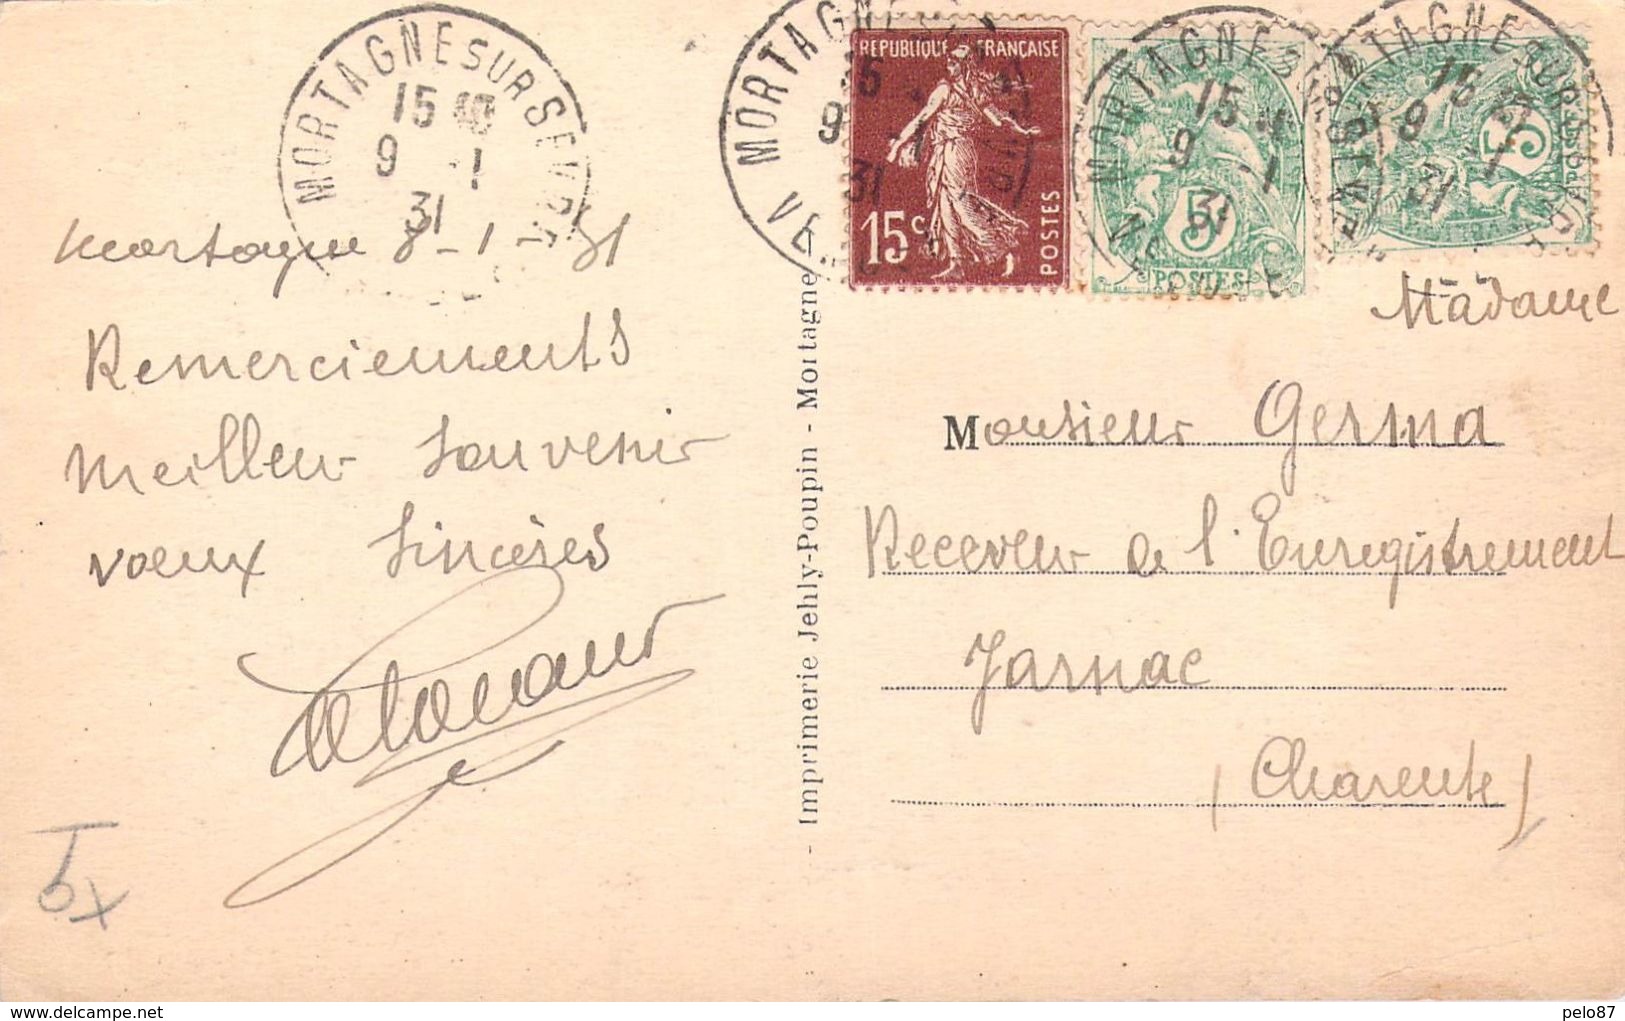 MORTAGNE SUR SEVRE
15
9 -1
31
MORTAGNE
VENDEE
15
9 -1
31
REPUBLIQUE FRANÇAISE
15c
POSTES
MORTAGNE SUR
15
9 -1
31
5
POSTES
TAGNE SUR
15
9 -1
31
5
Mortagne 8-1-31
Remerciements
Meilleur souvenir
voeux sincères
- Imprimerie Jehly-Poupin - Mortagne
Madame
Monsieur Germa
Receveur de l'Enregistrement
Jarnac
(Charente)
pelo87